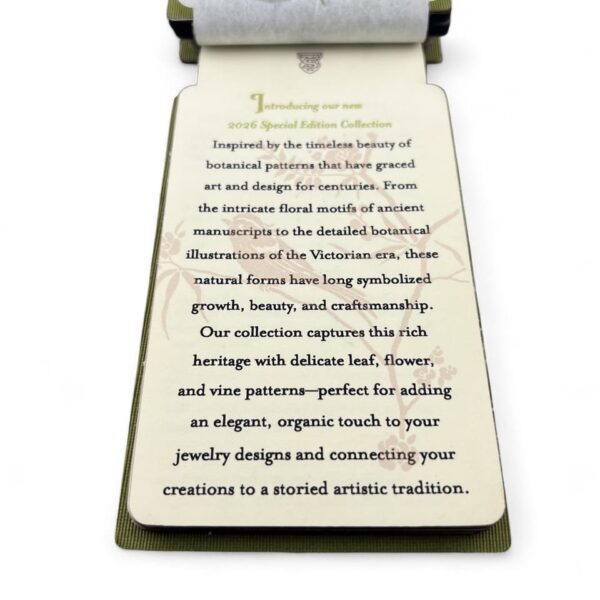 Introducing our new
2026 Special Edition Collection
Inspired by the timeless beauty of
botanical patterns that have graced
art and design for centuries. From
the intricate floral motifs of ancient
manuscripts to the detailed botanical
illustrations of the Victorian era, these
natural forms have long symbolized
growth, beauty, and craftsmanship.
Our collection captures this rich
heritage with delicate leaf, flower,
and vine patterns—perfect for adding
an elegant, organic touch to your
jewelry designs and connecting your
creations to a storied artistic tradition.